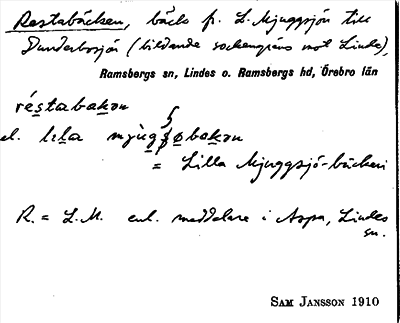 Restabäcken, bäck fr. L. Mjuggsjön till
Danderbosjön (bildande sockengräns mot Linde),
Ramsbergs sn, Lindes o. Ramsbergs hd, Örebro län
réstabakən
el. lɩla mỳugʃøbakən
= Lilla Mjuggsjö-bäcken
R. = L.M. enl. meddelare i Aspa, Lindes
sn.
SAM JANSSON 1910